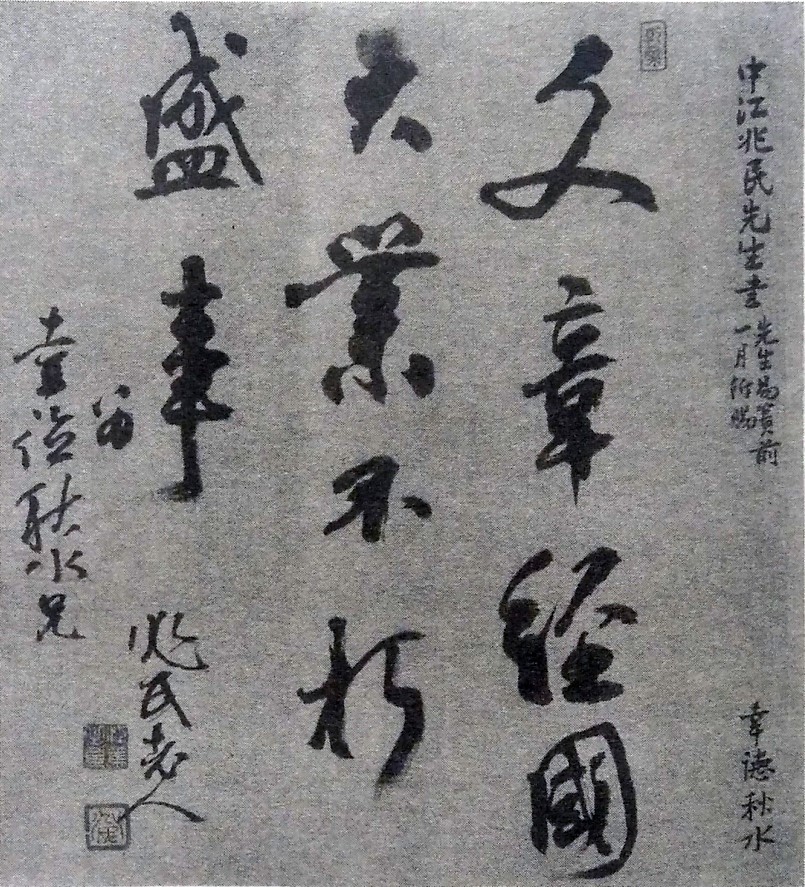 中江兆民先生書
先生易簀前
一月所賜
幸徳秋水
文章経國
大業不朽
盛事
兆民老人
幸徳秋水兄